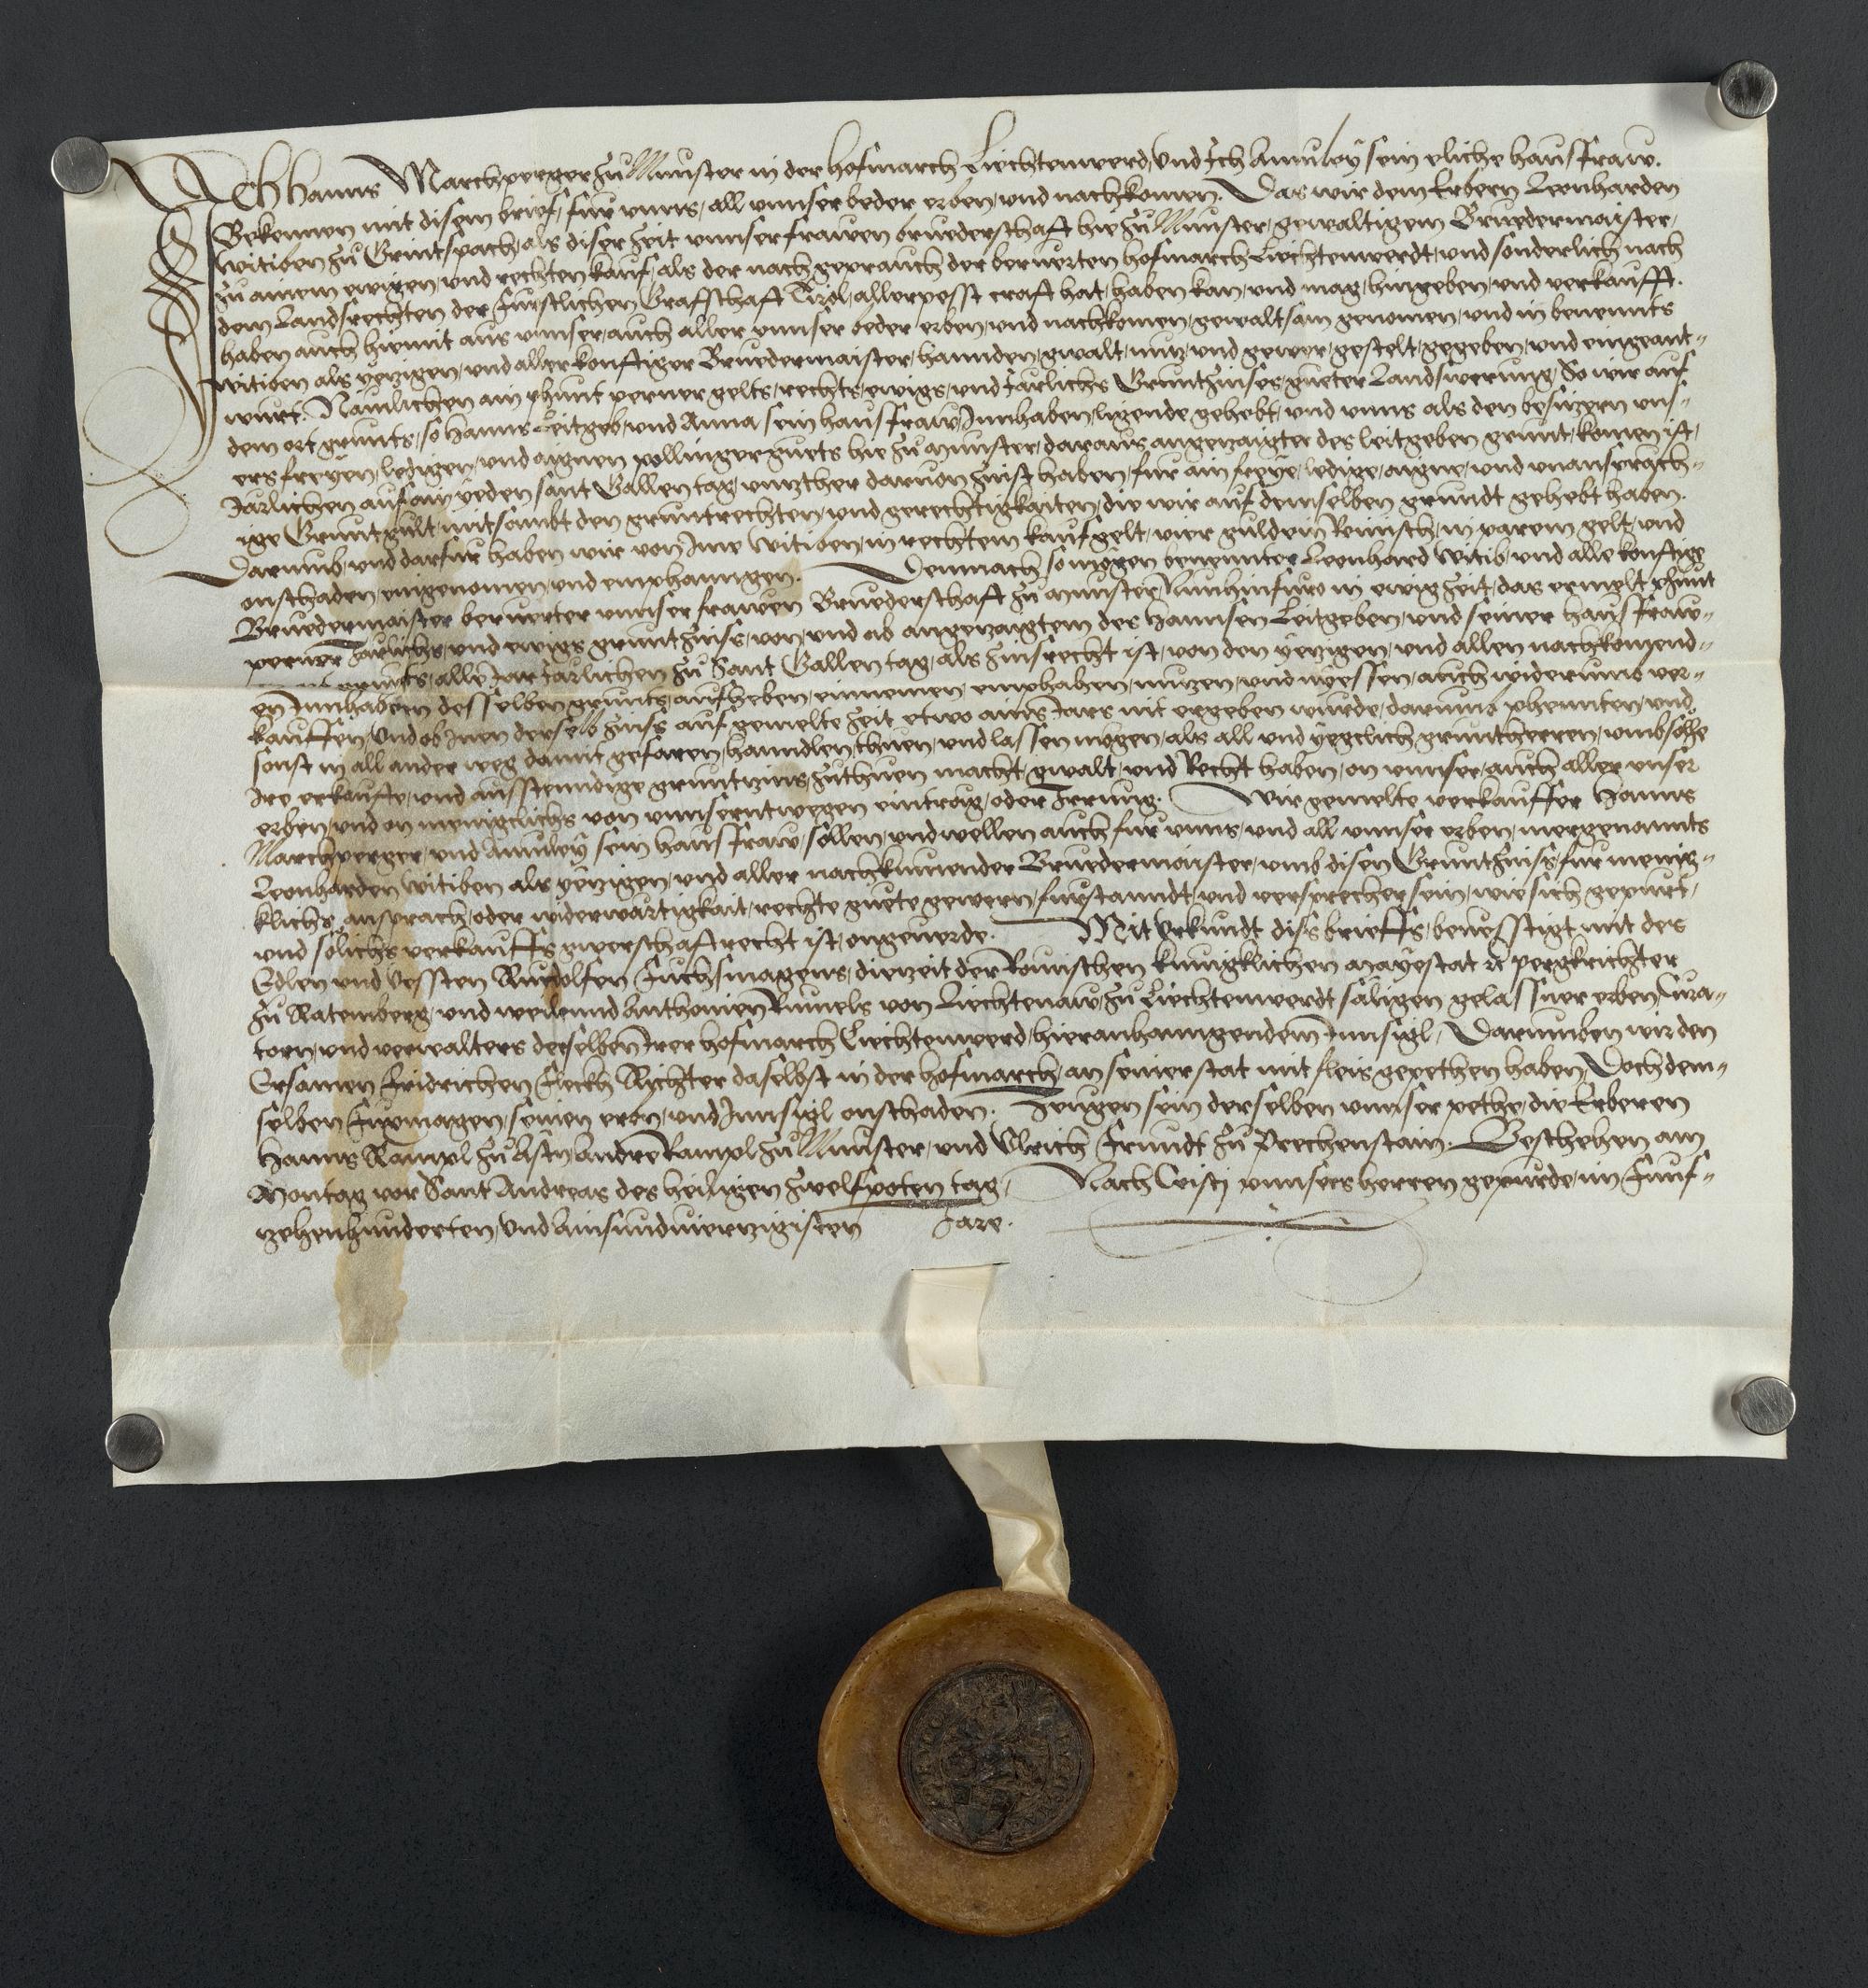 Ich Hanns Marchperger zu Munster in der Hofmarch Liechtenwerd, und Ich Annuley sein eliche hausfraw.
Bekennen mit disem brief, fur unns, all unnser beder erben, und nachkomen. Das wir dem Erbern Leonharden
Witiben zu Grintspach, als diser zeit unnser frawen bruederschaft hie zu Munster, gewaltigem Bruedermaister,
zu ainem ewigen, und rechten kauf, als der nach geprauch der beruerten hofmarch Liechtenwerdt, und sonderlich nach
dem Landsrechten der Furstlichen Grafschaft Tirol, allerpesst craft hat, haben kan, und mag, hingeben, und verkaufft.
haben auch hiemit aus unnser, auch aller unnser beder erben, und nachkomen, gewaltsam genomen, und in benennts
Witiben als yetzigen, und aller konftiger Bruedermaister, hannden, gwalt, nutz, und gewer, gestelt, gegeben, und eingeant-
wurt. Nämlichen ain phunt perner gelts, rechts, ewigs, und Järlichs Gruntzinses, gueter Landswerung, So wir auf
dem ort grunts, so Hanns Leitgeb, und Anna sein hausfraw, Innhaben, ligende gehebt, und unns als den besitzern uns-
ers freyen, ledigen, und aignen pollinger guets hie zu Munster, daraus angezaigter des leitgeben grunt, komen ist,
Järlichen auf ain yeden sant Gallen tag, unntzher daruon zinst haben, fur ain freye, ledige, aigne, und unansprach-
ige Gruntgult, mitsambt den gruntrechten, und gerechtigkaiten, die wir auf demselben grundt gehebt haben.
Darumb, und darfur haben wir von Ime Witiben, in rechtem kaufgelt, vier guldein Reinisch, in parem gelt, und
onschaden eingenomen, und emphanngen. Demnach so mögen benennter Leonhard Witib, und alle konftige
Bruedermaister beruerter unnser frawen Bruederschaft zu Munster, Nun hinfuro in ewig zeit, das ermelt phunt
perner Järlichs, und ewigs gruntzinss, von, und ab angezaigtem des Hannsen Leitgeben, und seiner hausfraw-
grunts, alle Jar Järlichen zu Sant Gallen tag, als zinsrecht ist, von den yetzigen, und allen nachkomend-
en Innhabern desselben grunts, aufheben, einnemen, emphahen, nutzen, und niessen, auch widerumb ver-
kauffen, Und ob Inen derselb zinss auf gemelte zeit etwo ains Jars nit ergeben wurde, darumb phennten, und
sonst in all ander weg damit gefaren, hanndlen, thuen, und lassen mögen, als all und yegclich gruntherren, umb solhe
Ire erkaufte, und ausstenndige gruntzins, zuthuen macht, gwalt, und Recht haben, on unnser, auch aller unser
erben, und on menigclichs von unnserntwegen eintrag, oder Irrung. Wir gemelte verkauffer Hanns
Marchperger, und Annuley sein hausfraw, sollen, und wellen auch fur unns, und all unnser erben, mergenannts
Leonharden Witiben als yetzigen, und aller nachkumender Bruedermaister, umb disen Gruntzinss, fur menig-
klichs ansprach, oder widerwärtigkait, rechte guete gewern, furstanndt, und versprecher sein, wie sich gepurt,
und sölichs verkauffs gwerschaft recht ist, ongeuerde. Mit Urkundt diss brieffs, beuesstigt mit des
Edlen und Vessten Rudolfen Fuchsmagens, dietzeit der Romischen kunigklichen mayestat etc pergkrichter
zu Ratemberg, und weilennd Anthonien Rumels von Liechtenaw, zu Liechtenwerdt säligen gelassner erben, Cura-
torn, und verwalters derselben Irer hofmarch Liechtenwerd, hieranhanngendem Innsigl, Darumben wir den
Ersamen Fridrichen Fleckh Richter daselbst in der hofmarch, an seiner stat mit fleis gepethen haben, Doch dem-
selben Fuxmagen, seinen erbn, und Innsigl onschaden. Zeugen sein derselben unnser pethe, die Erberen
Hanns Rampl zu Asten, Andre Rampl zu Munster, und Ulrich Freundt zu Prechenstain. Geschehen am
Montag vor Sant Andreas des heiligen zwelfpoten tag, Nach Cristj unnsers herren gepurde, im Funf-
zehenhunderten, Und Ainsundviertzigisten Jare.